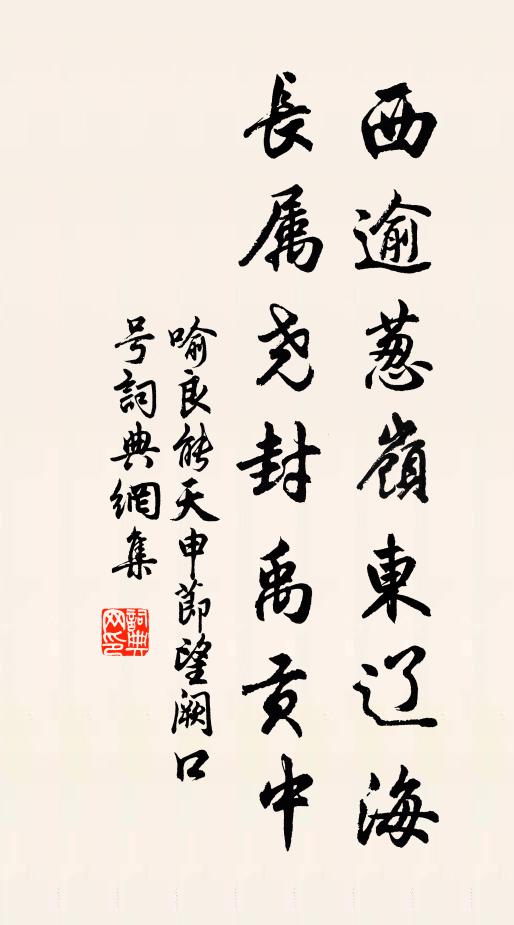 西逾葱嶺東辽海
長属尧封禹贡中
喻良能天申節望阙口
号詞典網集
詞典網印